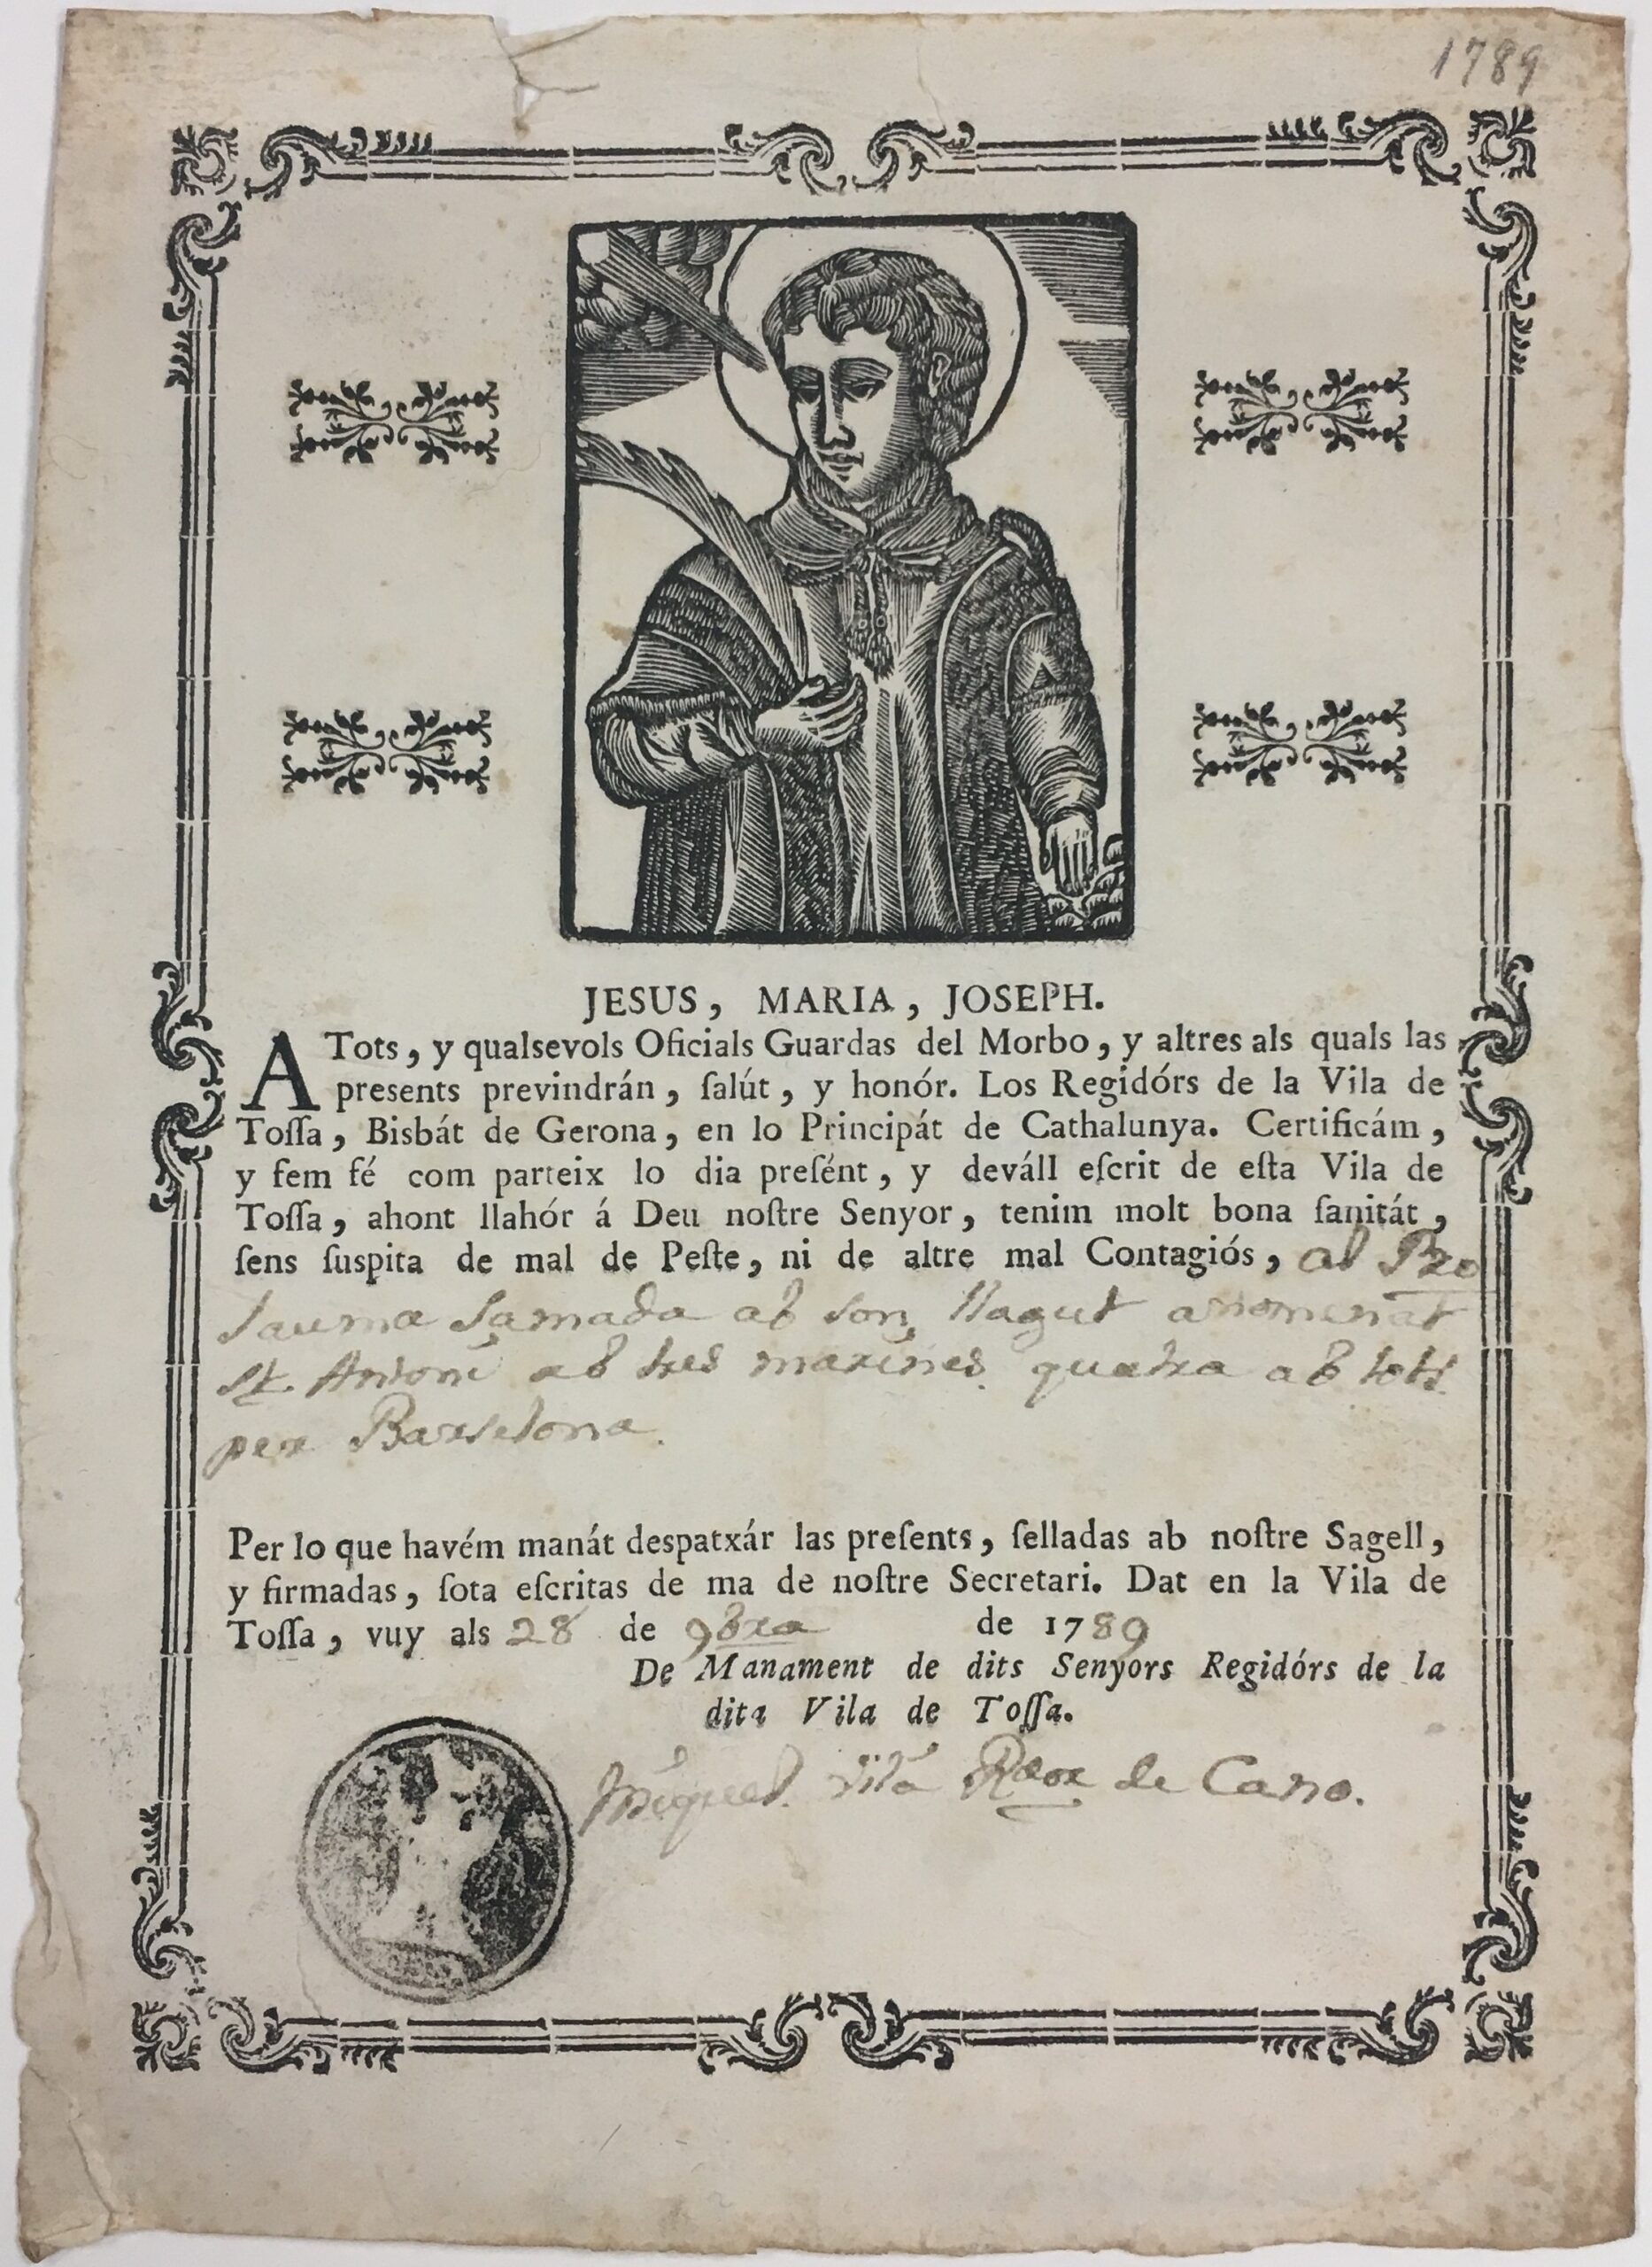 1789
JESUS, MARIA, JOSEPH.
A Tots, y qualsevols Oficials Guardas del Morbo, y altres als quals las
presents previndrán, ſalút, y honór. Los Regidórs de la Vila de
Toſſa, Bisbát de Gerona, en lo Principát de Cathalunya. Certificám,
y fem fé com parteix lo dia preſént, y deváll eſcrit de eſta Vila de
Toſſa, ahont llahór á Deu noſtre Senyor, tenim molt bona ſanitát,
ſens ſuspita de mal de Peſte, ni de altre mal Contagiós, al
Jauma Samada ab son llagut anomenat
St. Antoni ab tres marines quatra ab tots
per Barselona.
Per lo que havém manát despatxár las preſents, ſelladas ab noſtre Sagell,
y firmadas, ſota eſcritas de ma de noſtre Secretari. Dat en la Vila de
Toſſa, vuy als 28 de 9bra de 1789
De Manament de dits Senyors Regidórs de la
dita Vila de Toſſa.
Miquel Vila de Cano.